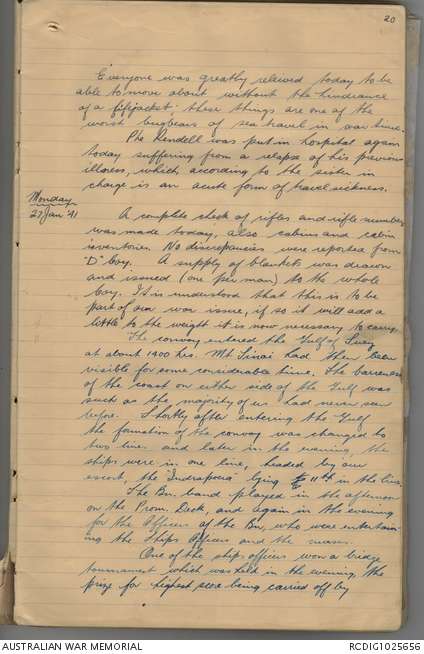 20
Everyone was greatly relieved today to be
able to move about without the hindrance
of a lifejacket; these things are one of the
worst bugbears of sea travel in war time.
Pte Rendell was put in hospital again
today suffering from a relapse of his previous
illness, which according to the sister in
charge is an acute form of travel sickness.
Monday
27 Jan '41
A complete check of rifles and rifle numbers
was made today, also cabins and cabin
inventories. No discrepancies were reported from
"D" Coy. A supply of blankets was drawn
and issued (one per man) to the whole
Coy. It is understood that this is to be
part of our war issue, if so it will add a
little to the weight it is now necessary to carry.
The convoy entered the Gulf of Suez
at about 1400 hrs. Mt Sinai had then been
visible for some considerable time. The bareness
of the coast on either side of the Gulf was
such as the majority of us had never seen
before. Shortly after entering the Gulf
the formation of the convoy was changed to
two lines and later in the evening, the
ships were in one line, headed by our
escort, the "Indrapoera" lying 11th in the line.
The Bn. band played in the afternoon
on the Prom. Deck, and again in the evening
for the Officers of the Bn, who were entertain-
ing the Ships Officers and the nurses.
One of the ships officers won a bridge
tournament which was held in the evening, the
prize for highest score being carried off by
AUSTRALIAN WAR MEMORIAL
RCDIG1025656